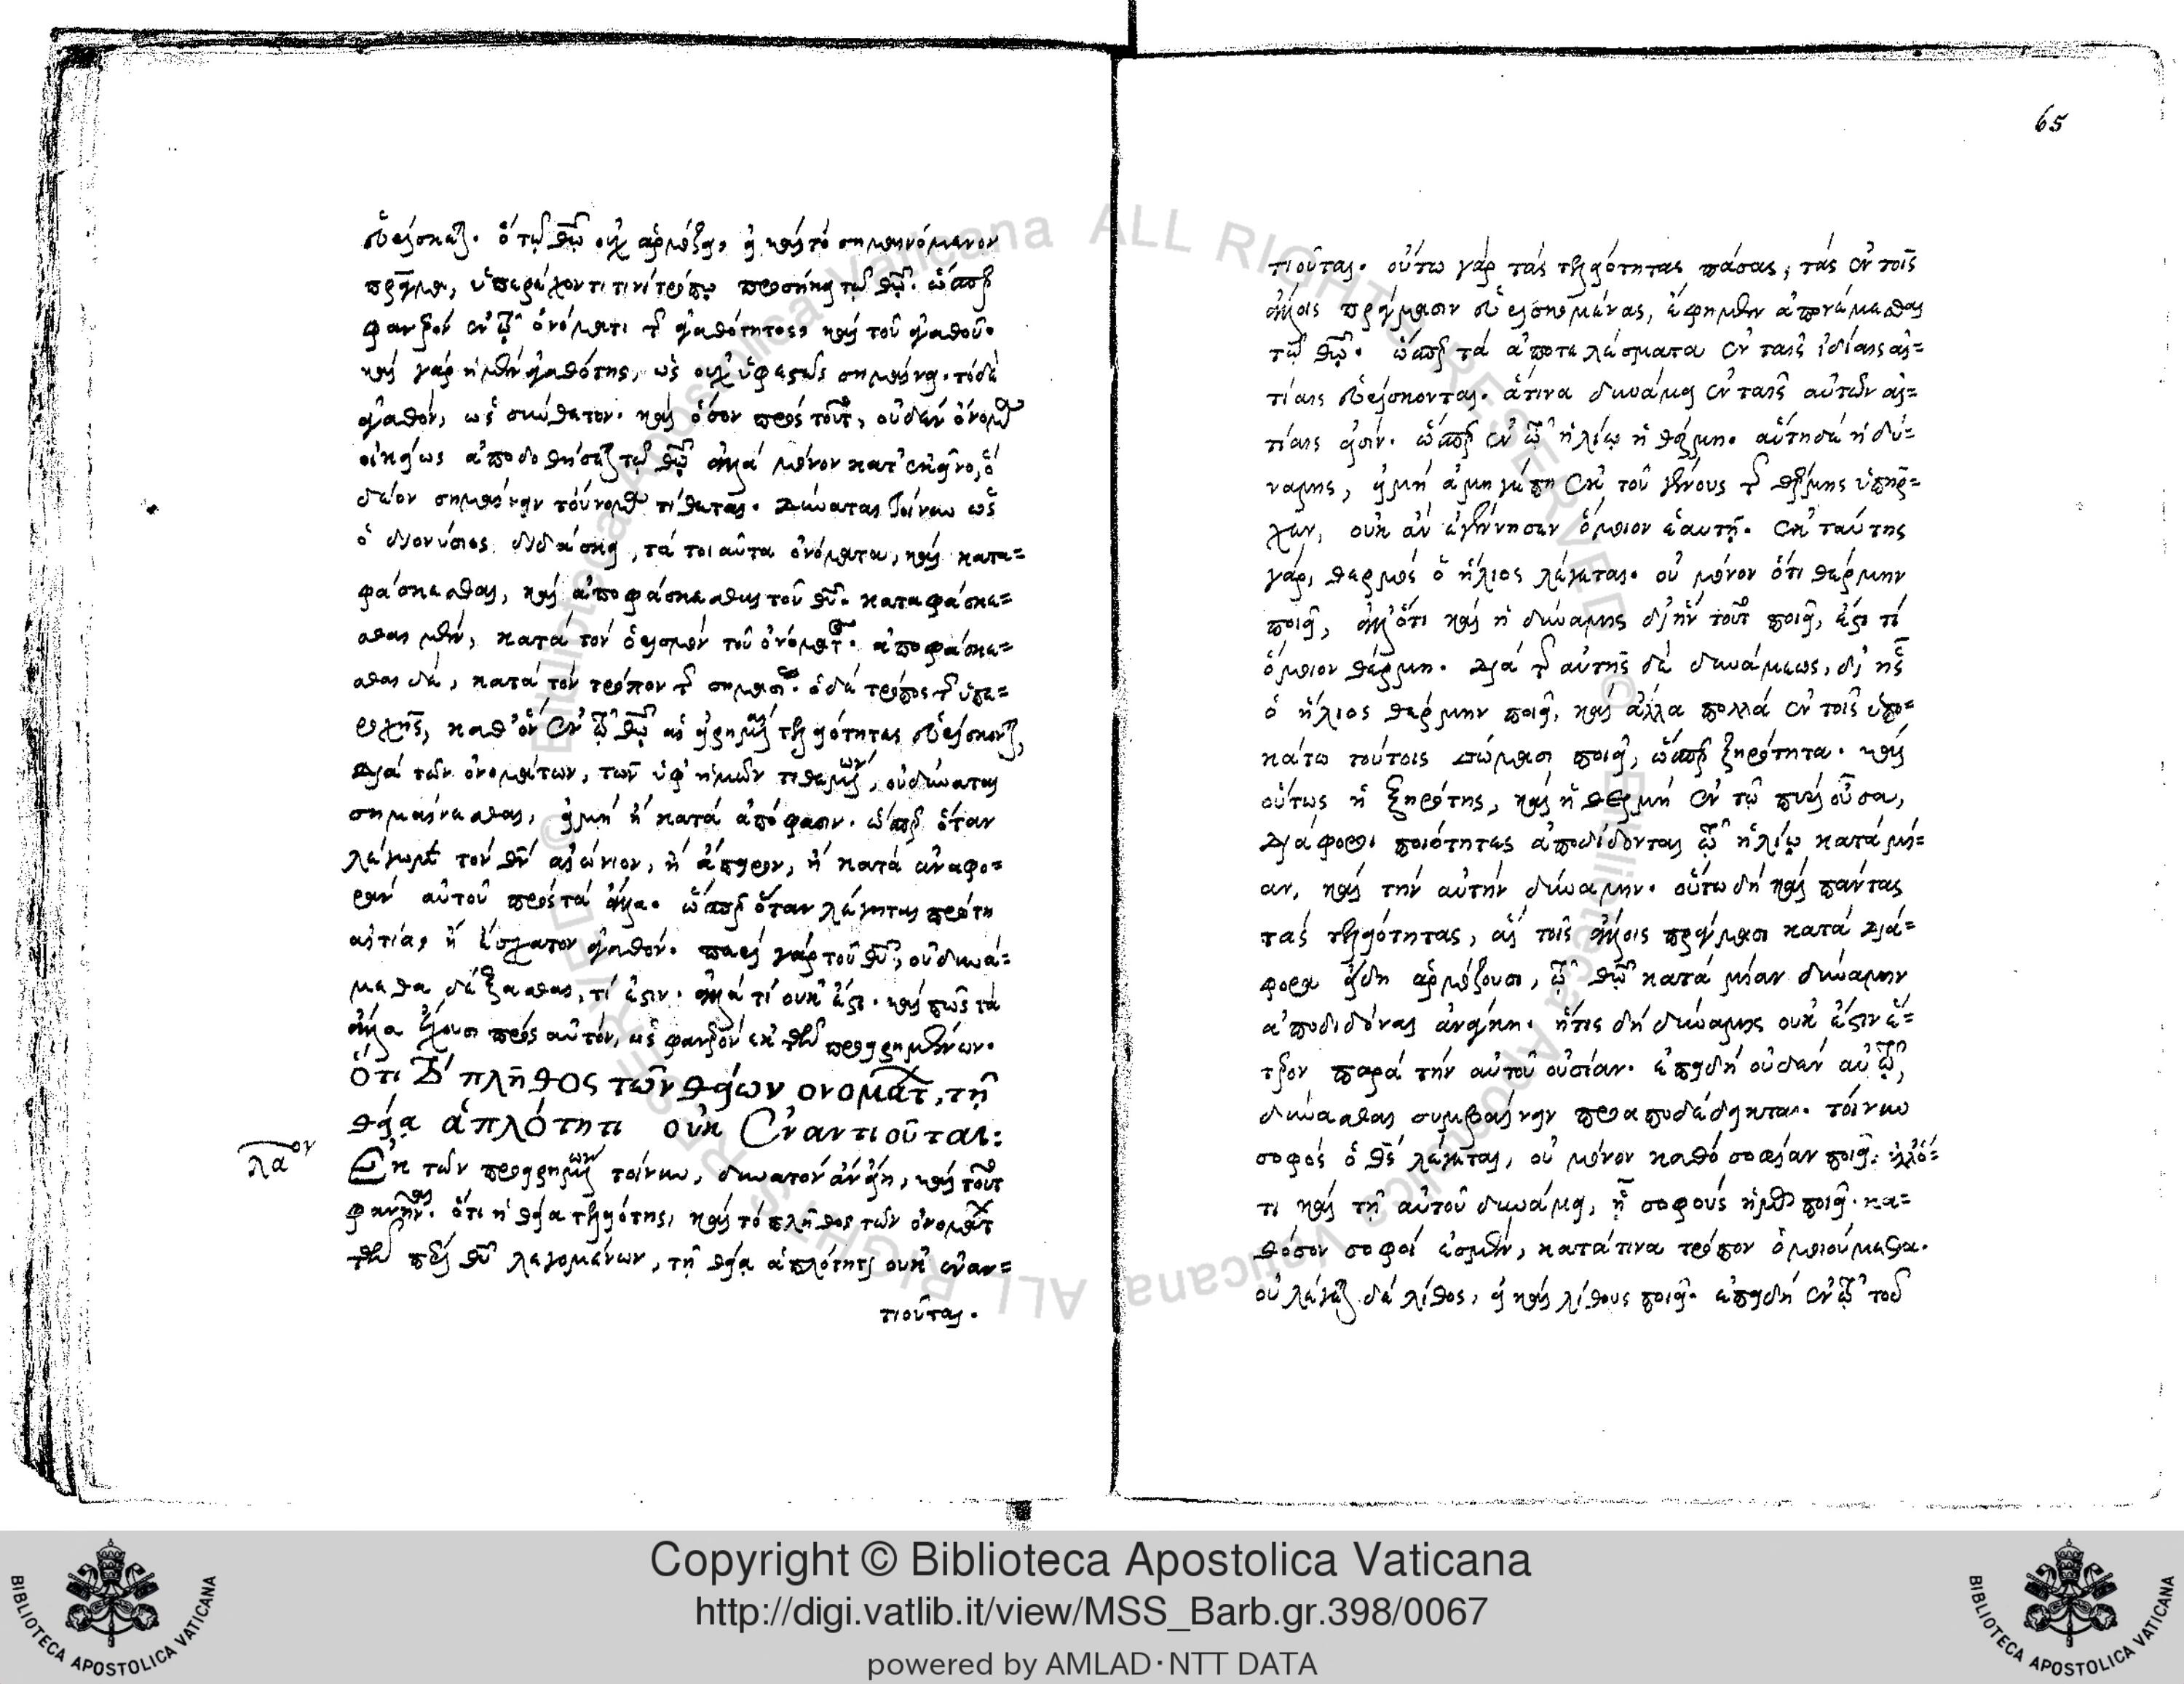 εὑρίσκεται. ὃ τῷ θῷ οὐχ ἁρμόζει, εἰ καὶ τὸ σημαινόμενον
πρᾶγμα, ὑπερέχοντι τινὶ τρόπῳ προσήκει τῷ θῷ. ὥσπερ
φανερόν ἐν τῷ ὀνόματι τῆς ἀγαθότητος, καὶ τοῦ ἀγαθοῦ.
καὶ γὰρ ἡ μὲν ἀγαθότης, ὡς οὐχ ὑφεστὼς σημαίνει. τὸ δὲ
ἀγαθὸν, ὡς σύνθετον. καὶ ὅσον πρὸς τοῦτο, οὐδὲν ὄνομα
οἰκείως ἀποδοθήσεται τῷ θῷ ἀλλὰ μόνον κατ' ἐκεῖνο, ὃ
δέον σημαίνειν τοὔνομα τίθεται. δύναται τοίνυν ὡς
ὁ διονύσιος διδάσκει, τὰ τοιαῦτα ὀνόματα, καὶ κατα=
φάσκεσθαι, καὶ ἀποφάσκεσθαι τοῦ θῦ. καταφάσκε=
σθαι μὲν, κατὰ τὸν ὁρισμὸν τοῦ ὀνόματος. ἀποφάσκε=
σθαι δὲ, κατὰ τὸν τρόπον τῆς σημασίας. ὁ δὲ τρόπος τῆς ὑπε=
ροχῆς, καθ' ὃν ἐν τῷ θῷ αἱ εἰρημέναι τελειότητες εὑρίσκονται,
διὰ τῶν ὀνομάτων, τῶν ὑφ' ἡμῶν τιθεμένων, οὐ δύναται
σημαίνεσθαι, εἰ μὴ ἢ κατὰ ἀπόφασιν. ὥσπερ ὅταν
λέγωμεν τὸν θν αἰώνιον, ἢ ἄπειρον, ἢ κατὰ ἀναφο=
ρὰν αὐτοῦ πρὸς τὰ ἄλλα. ὥσπερ ὅταν λέγηται πρώτη
αἰτία, ἢ ἔσχατον ἀγαθόν. περὶ γὰρ τοῦ θῦ, οὐ δυνά=
μεθα δέξασθαι, τί ἐστιν. ἀλλὰ τί οὐκ ἔστι. καὶ πῶς τὰ
ἄλλα ἔχουσι πρὸς αὐτὸν, ὡς φανερόν ἐκ τῶν προειρημένων.
ὅτι τὸ πλῆθος τῶν θείων ὀνομάτων, τῇ
θείᾳ ἁπλότητι οὐκ ἐναντιοῦται:
λα ον
Ἐκ τῶν προειρημένων τοίνυν, δυνατόν ἐστι, καὶ τοῦτο
φανῆναι. ὅτι ἡ θεία τελειότης, καὶ τὸ πλῆθος τῶν ὀνομάτων
τῶν περὶ θῦ λεγομένων, τῇ θείᾳ ἁπλότητι οὐκ ἐναν=
τιοῦται.
65
τιοῦται. οὕτω γὰρ τὰς τελειότητας πάσας, τὰς ἐν τοῖς
ἄλλοις πράγμασιν εὑρισκομένας, ἔφημεν ἀπονέμεσθαι
τῷ θῷ. ὥσπερ τὰ ἀποτελέσματα ἐν ταῖς ἰδίαις αἰ=
τίαις εὑρίσκονται. ἅτινα δυνάμει ἐν ταῖς αὐτῶν αἰ=
τίαις εἰσίν. ὥσπερ ἐν τῷ ἡλίῳ ἡ θέρμη. αὕτη δὲ ἡ δύ=
ναμις, εἰ μὴ ἁμηγέπη ἐκ τοῦ γένους τῆς θέρμης ὑπῆρ=
χεν, οὐκ ἂν ἐγέννησεν ὅμοιον ἑαυτῇ. ἐκ ταύτης
γὰρ, θερμὸς ὁ ἥλιος λέγεται. οὐ μόνον ὅτι θέρμην
ποιεῖ, ἀλλ' ὅτι καὶ ἡ δύναμις δι' ἣν τοῦτο ποιεῖ, ἔστι τί
ὅμοιον θέρμη. διὰ τῆς αὐτῆς δὲ δυνάμεως, δι' ἧς
ὁ ἥλιος θέρμην ποιεῖ, καὶ ἄλλα πολλὰ ἐν τοῖς ὑπο=
κάτω τούτοις σώμασι ποιεῖ, ὥσπερ ξηρότητα. καὶ
οὕτως ἡ ξηρότης, καὶ ἡ θέρμη ἐν τῷ πυρὶ οὖσα,
διάφοροι ποιότητες ἀποδίδονται τῷ ἡλίῳ κατὰ μί=
αν, καὶ τὴν αὐτὴν δύναμιν. οὕτω δὴ καὶ πάντας
τὰς τελειότητας, αἳ τοῖς ἄλλοις πράγμασι κατὰ διά=
φορα εἴδη ἁρμόζουσι, τῷ θῷ κατὰ μίαν δύναμιν
ἀποδιδόναι ἀνάγκη. ἥτις δὴ δύναμις οὐκ ἔστιν ἕ=
τερον παρὰ τὴν αὐτοῦ οὐσίαν. ἐπειδὴ οὐδὲν αὐτῷ,
δύνασθαι συμβαίνειν προαποδέδεικται. τοίνυν
σοφὸς ὁ θς λέγεται, οὐ μόνον καθὸ σοφίαν ποιεῖ. ἀλλ' ὅ=
τι καὶ τῇ αὐτοῦ δυνάμει, ᾗ σοφοὺς ἡμᾶς ποιεῖ. κα=
θόσον σοφοί ἐσμὲν, κατά τινα τρόπον ὁμοιούμεθα.
οὐ λέγεται δὲ λίθος, εἰ καὶ λίθους ποιεῖ. ἐπειδὴ ἐν τῷ τοῦ
Copyright © Biblioteca Apostolica Vaticana
http://digi.vatlib.it/view/MSS_Barb.gr.398/0067
powered by AMLAD·NTT DATA
BIBLIOTECA APOSTOLICA VATICANA
BIBLIOTECA APOSTOLICA VATICANA